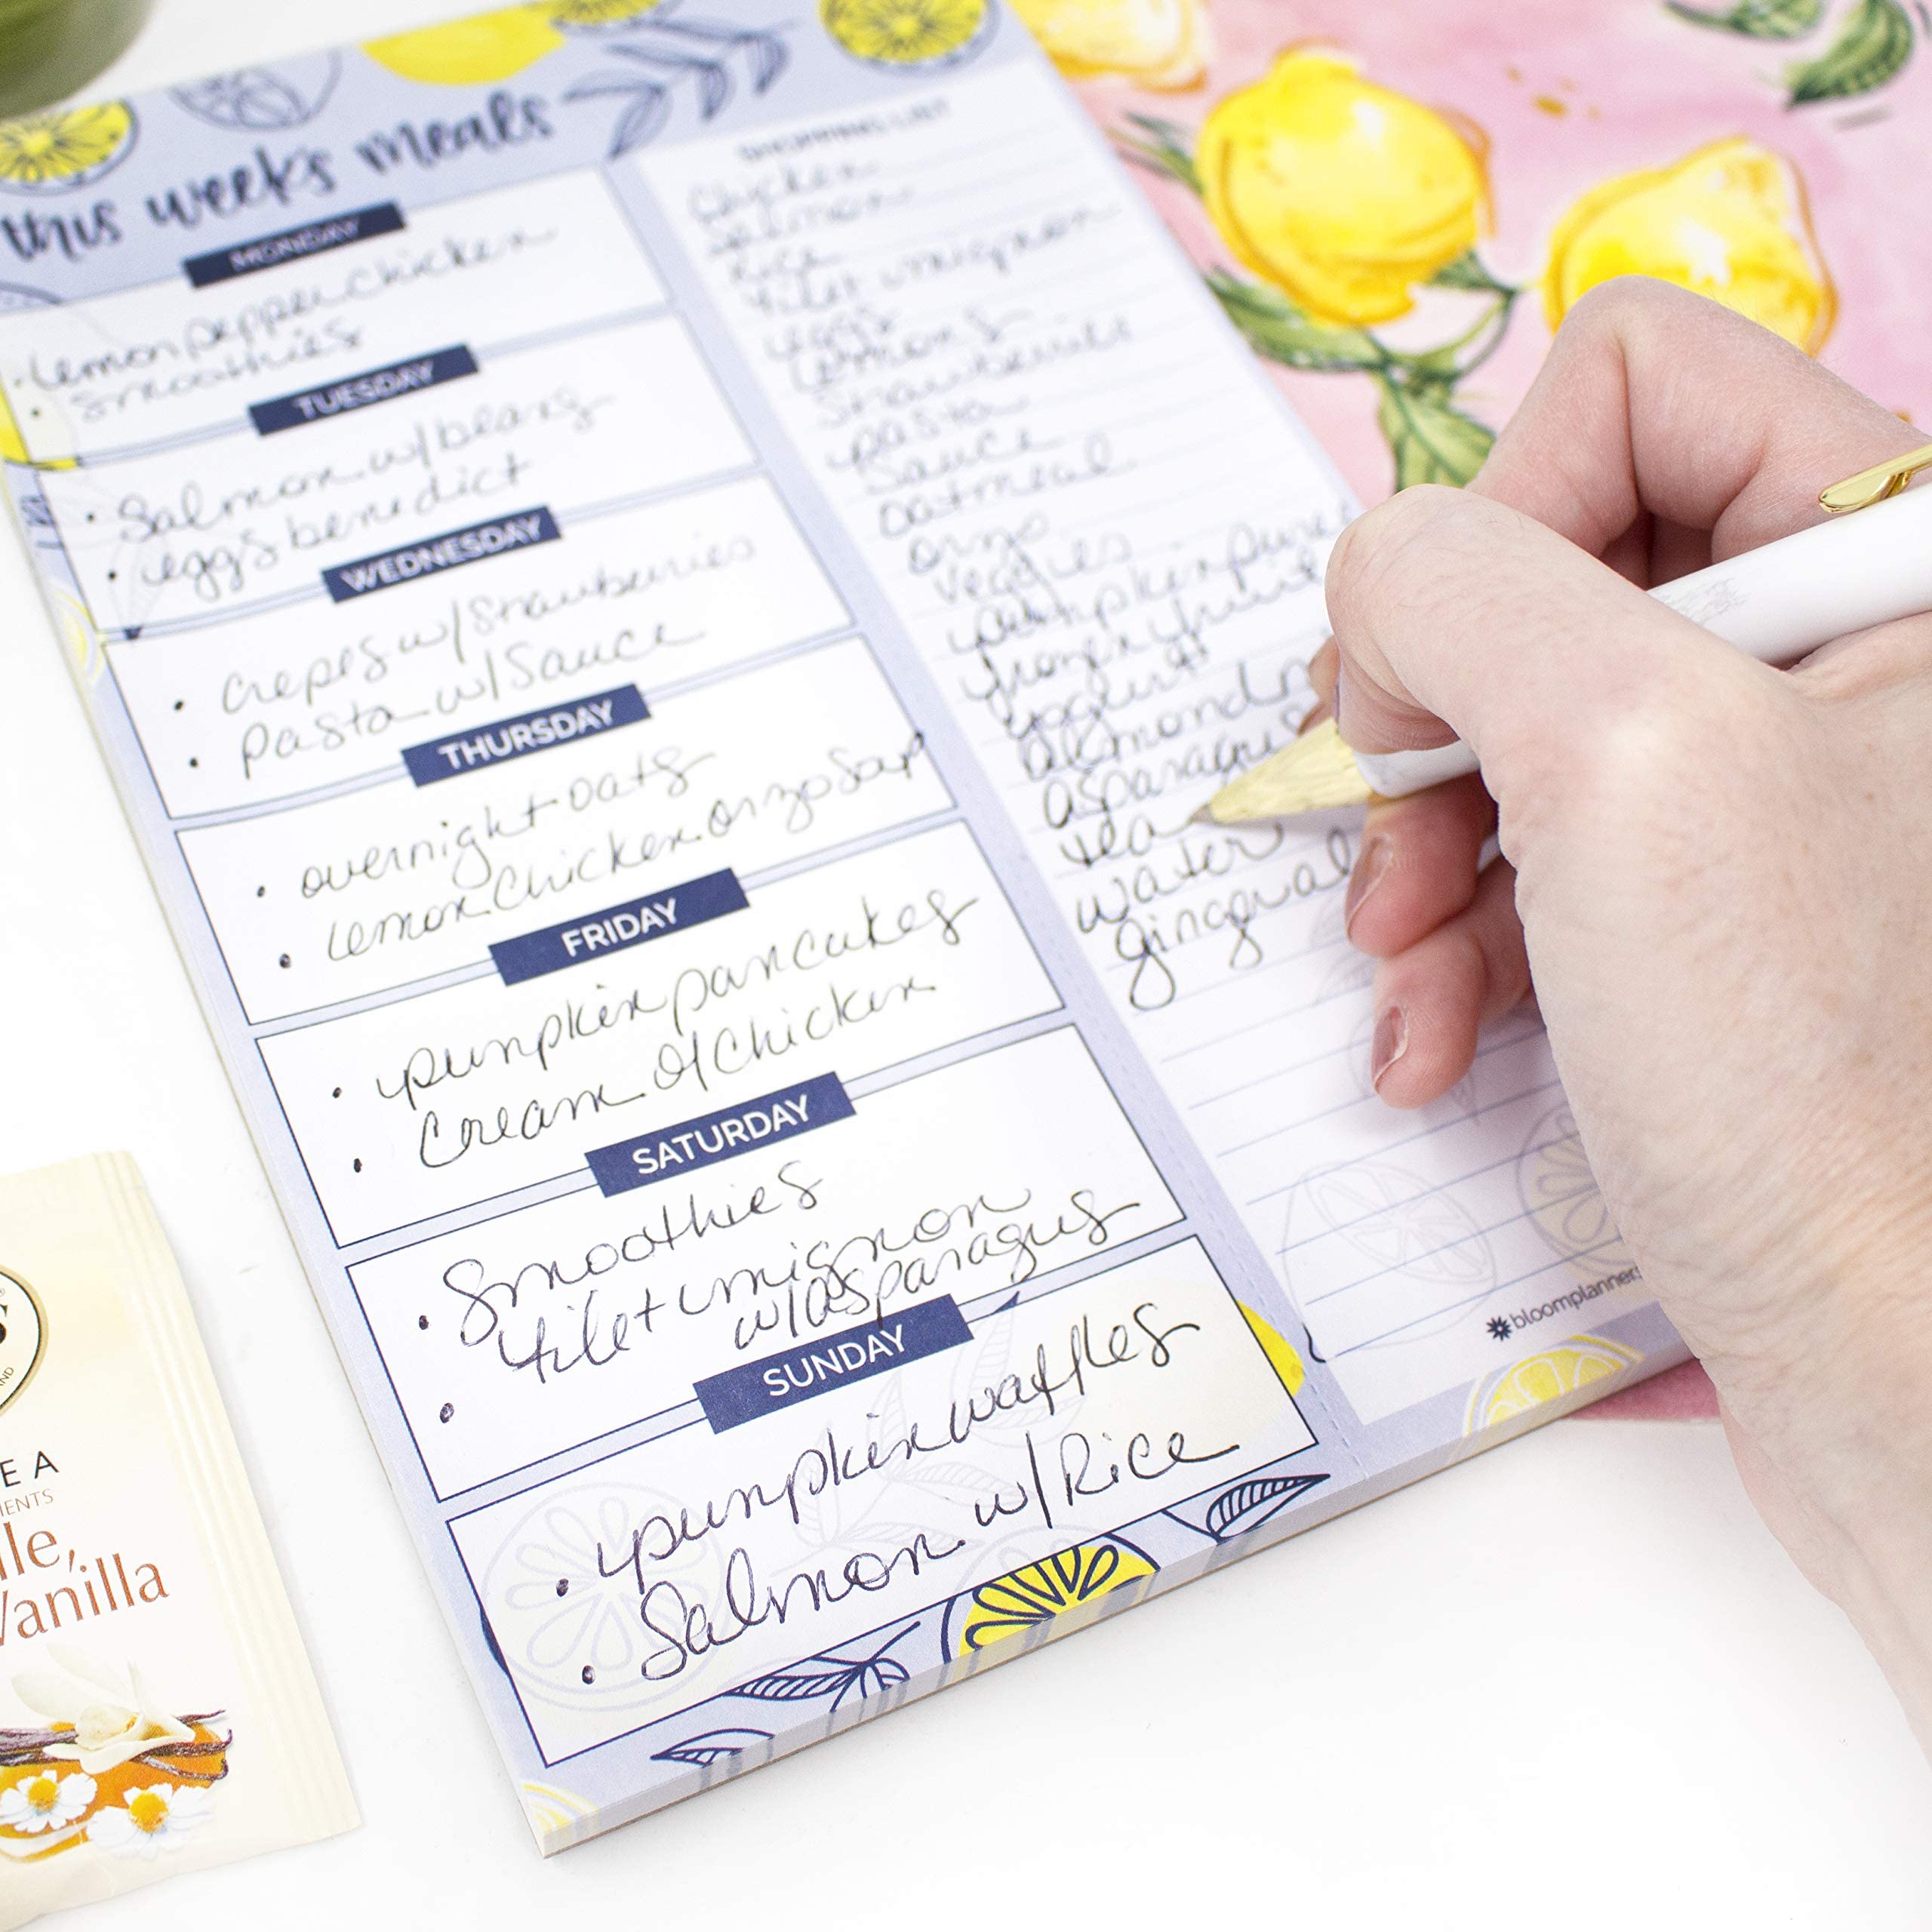 this week's meals
MONDAY
lemon pepper chicken
smoothies
TUESDAY
Salmon w/beans
eggs benedict
WEDNESDAY
crepes w/Strawberries
pasta w/Sauce
THURSDAY
overnight oats
lemon chicken orzo Soup
FRIDAY
pumpkin pancakes
Cream of Chicken
SATURDAY
Smoothies
filet mignon
w/asparagus
SUNDAY
pumpkin waffles
Salmon w/Rice
SHOPPING LIST
Chicken
Salmon
Rice
filet mignon
eggs
lemons
Strawberries
pasta
Sauce
oatmeal
orzo
veggies
pumpkin puree
frozen fruit
yogurt
almond
asparagus
tea
water
gingeral
bloomplanners
S
AND
EA
MENTS
lle,
Vanilla